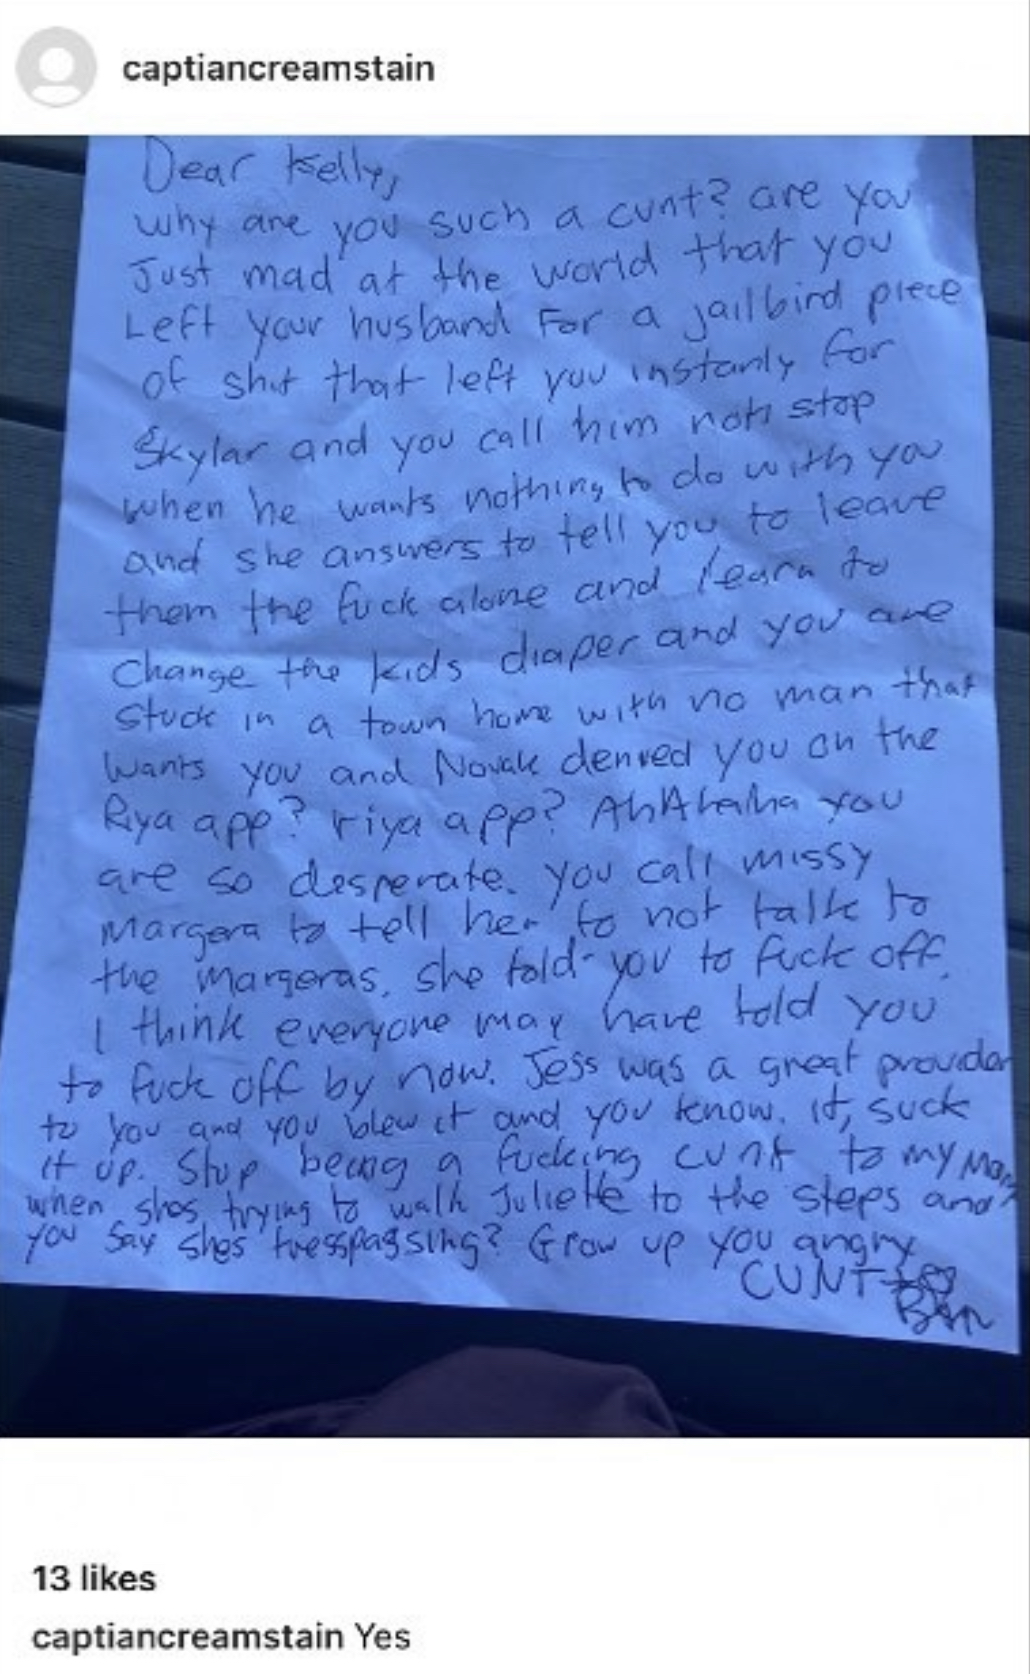 captiancreamstain
Dear Kelly,
why are you such a cunt? are you
Just mad at the world that you
Left your husband For a jailbird piece
of shit that left you instanly for
Skylar and you call him non stop
when he wants nothing to do with you
and she answers to tell you to leave
them the fuck alone and learn to
Change the kids diaper and you are
stuck in a town home with no man that
wants you and Novak denied you on the
Riya app? riya app? AhAhahha you
are so desperate. you call missy
Margera to tell her to not talk to
the margeras, she told you to fuck off.
I think everyone may have told you
to fuck off by now. Jess was a great provider
to you and you blew it and you know. it, suck
it up. Stop being a fucking cunt to my Mom
when shes trying to walk Juliette to the steps and
you say shes tresspassing? Grow up you angry
CUNT
BAM
13 likes
captiancreamstain Yes